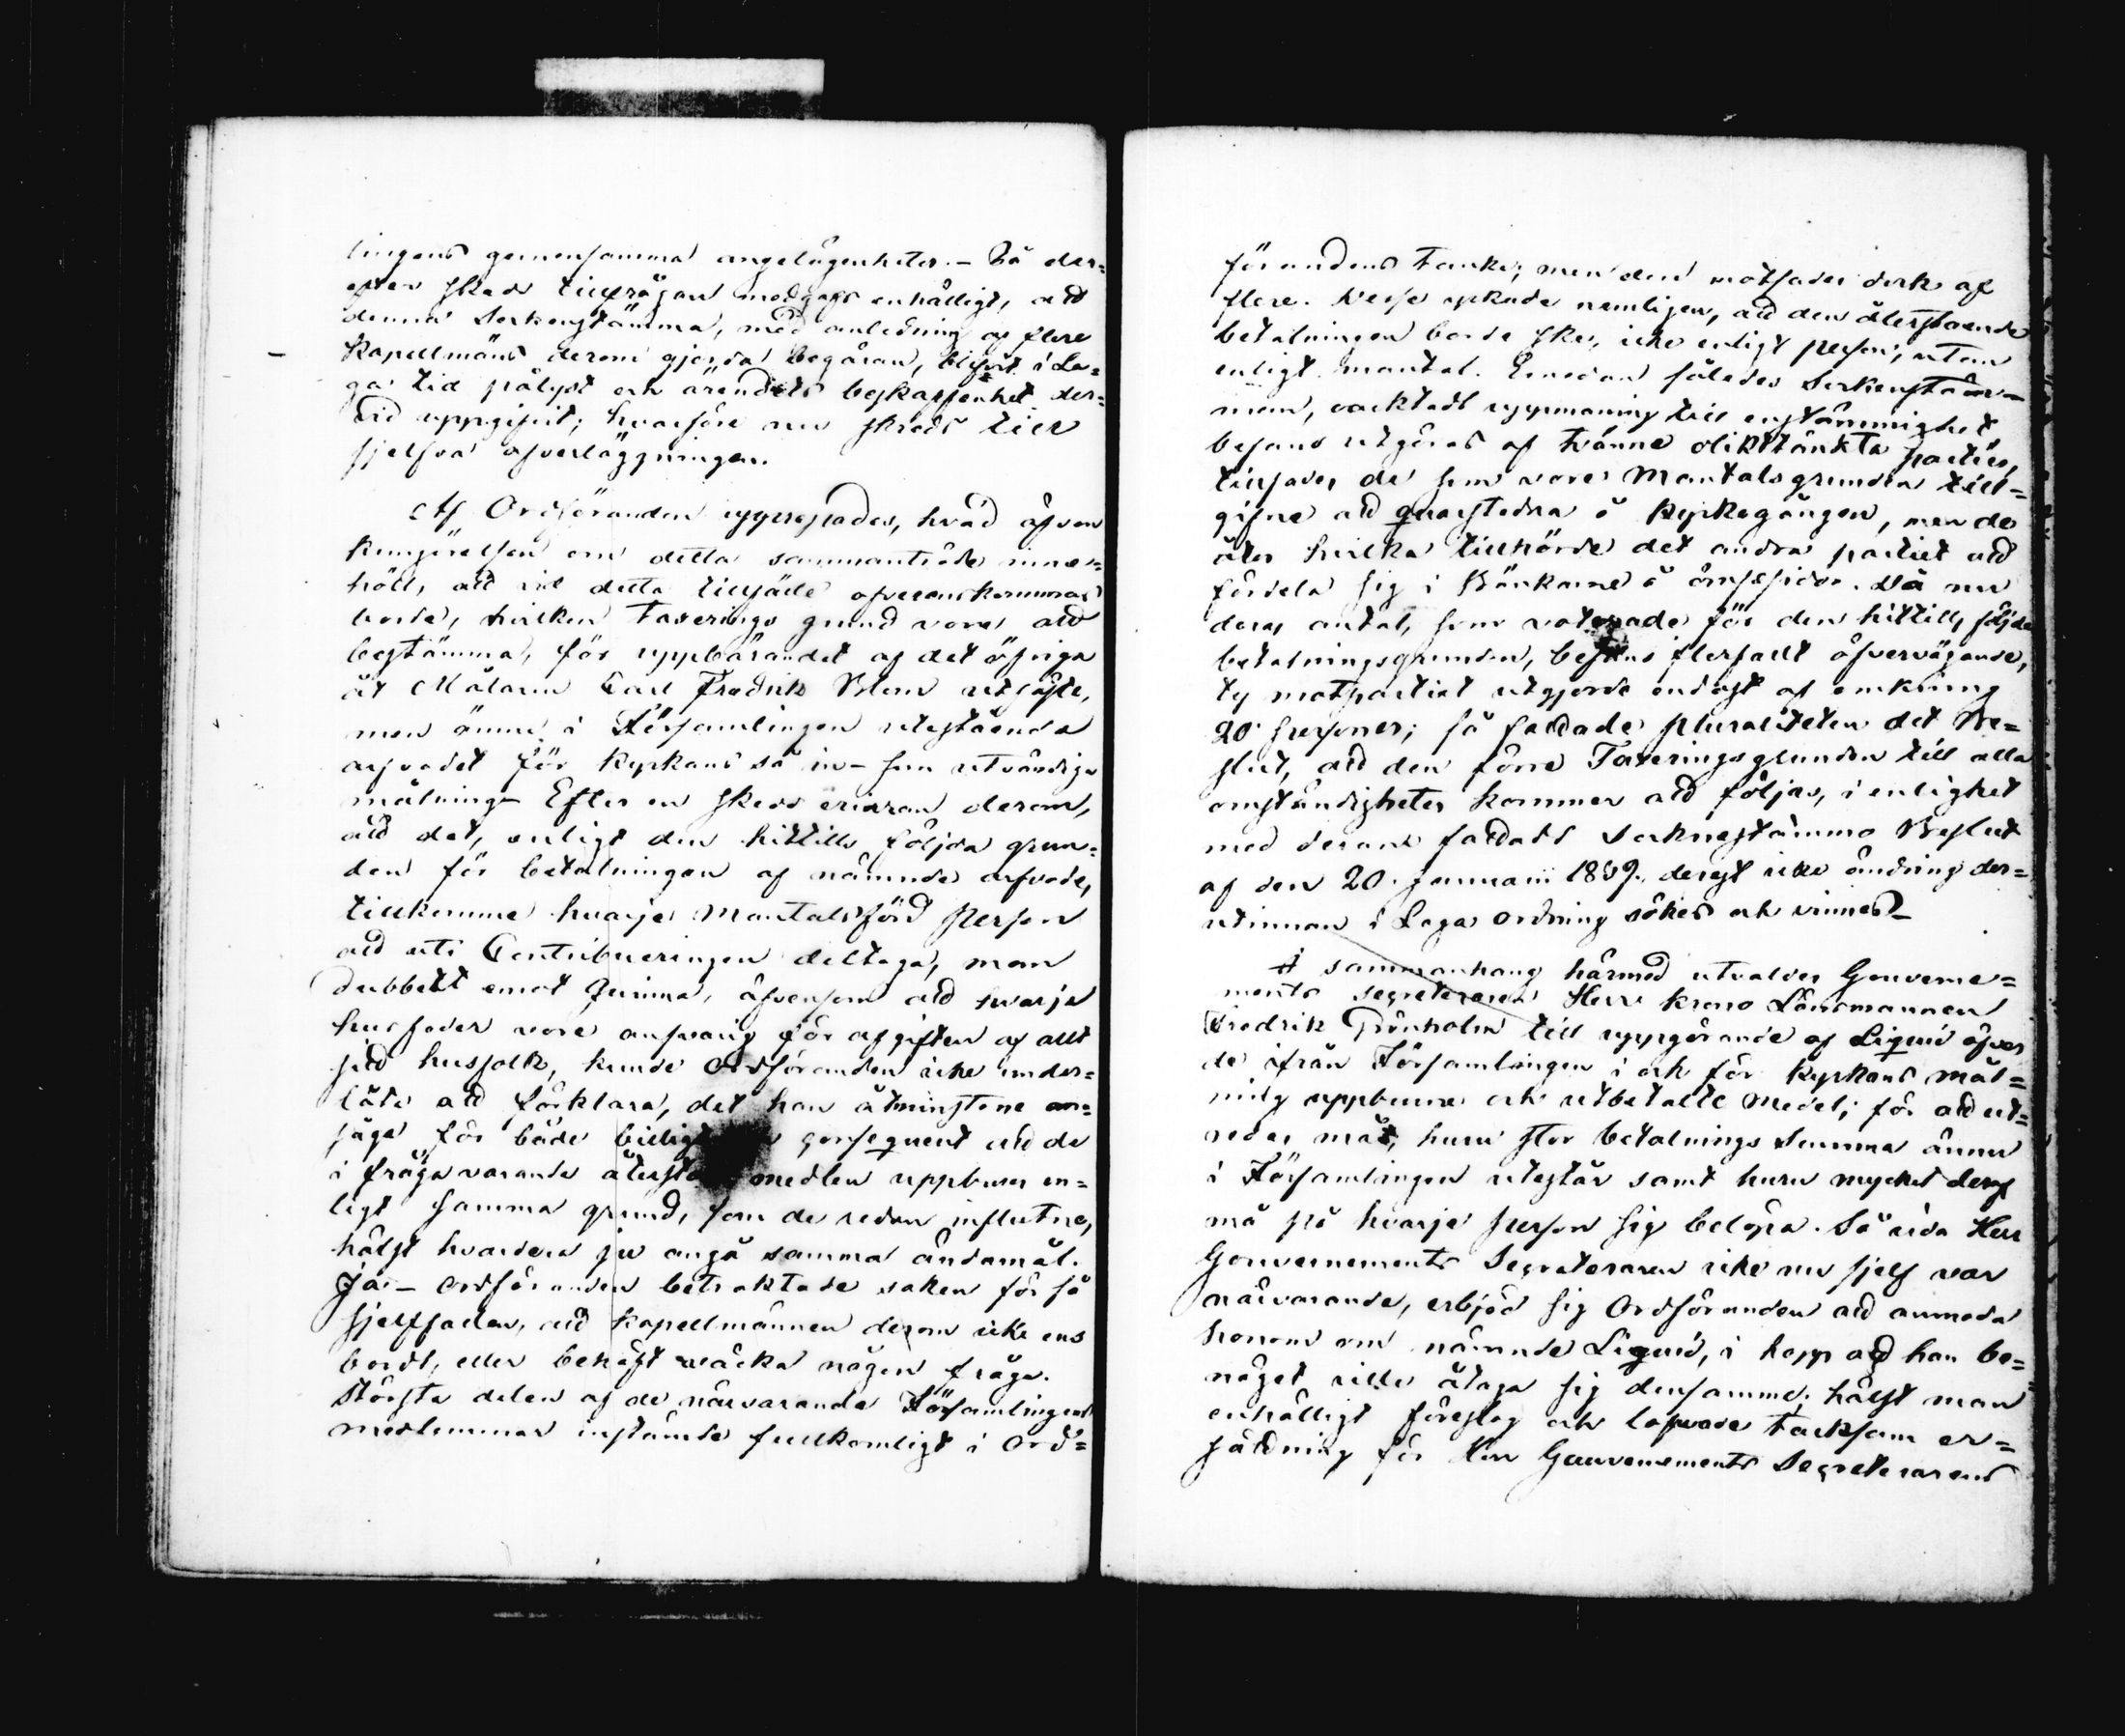 lingens gemensamma angelägenheter. – På der=
efter skedd tillfrågan medgafs enhälligt, att
denna Sockenstämma, med anledning af flere
Kapellmäns derom gjorda begäran, blifvit i La=
ga tid pålyst och ärendets beskaffenhet der=
vid uppgifvit; hvarföre nu skreds till
sjelfva öfverläggningen.
Af Ordföranden upprepades, hvad äfven
kungörelsen om detta sammanträde inne=
höll, att vid detta tillfälle öfverenskommas
borde, hvilken Taxerings grund vore att
bestämma, för uppbärandet af det öfriga
åt Målaren Carl Fredrik Blom utfäste,
men ännu i Församlingen utestående
arfvodet för kyrkans så in- som utvändiga
målning. Efter en skedd erinran derom,
att det, enligt den hittills följda grun=
den för betalningen af nämnde arfvode,
tillkomme hvarje Mantalsförd person
att uti Contribueringen deltaga, man
dubbelt emot qvinna, äfvensom att hvarje
husfader vore ansvarig för afgiften af allt
sitt husfolk, kunde Ordföranden icke under=
låta att förklara, det han åtminstone an=
såge för både billigt consequent att de
i fråga varande medlen uppburos en=
ligt samma grund, som de redan influtne,
hälst hvardera ju angå samma ändamål.
Ja – Ordföranden betraktade saken för så
sjelffallen, att Kapellmännen derom icke ens
bordt, eller behöft väcka någon fråga.
Största delen af de närvarande Församlingens
medlemmar instämde fullkomligt i Ord=
förandens tanke; men den motsades dock af
flere. Desse yrkade nemligen, att den återstående
betalningen borde ske, icke enligt person, utan
enligt mantal. Emedan således Sockenstäm=
man, oacktadt uppmaning till enstämmighet
befans utgöras af tvänne olikttänkta partier,
tillsades de som vore Mantalsgrunden till=
gifne att qvarstadna å kyrkogången, men de
åter hvilka tillhörde det andra partiet att
fördela sig i Bänkarne å ömse sidor. Då nu
deras antal, som voterade för den hittills följda
betalningsgrunden, befans flerfaldt öfvervägande,
ty motpartiet utgjorde endast af omkring
20 personer; så fattade pluraliteten det Be=
slut, att den förre Taxeringsgrunden till alla
omständigheter kommer att följas, i enlighet
med derom fattadt Sockenstämmo Beslut
af den 20. Januarii 1859., derest icke ändring der=
utinnan i Laga ordning sökes och vinnes. –
I sammanhang härmed utvaldes Gouverne=
ments Secreteraren Herr Krono Länsmannen
Fredrik Grönholm till uppgörande af Liquid öfver
de ifrån Församlingen i och för kyrkans mål=
ning uppburne och utbetalte medel; för att ut=
redas må, huru stor betalnings Summa ännu
i Församlingen utestår samt huru mycket deraf
må på hvarje person sig belöpa. Så vida Herr
Gouvernements Secreteraren icke nu sjelf var
närvarande, erbjöd sig Ordföranden att anmoda
honom om nämnde Liquid, i hopp att han be=
näget ville åtaga sig densamma, hälst man
enhälligt föreslog och lofvade tacksam er=
sättning för Herr Gouvernements Secreterarens